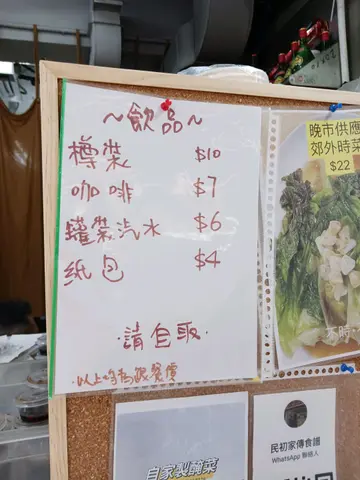 ~飲品~
樽裝 $10
咖啡 $7
罐裝汽水 $6
紙包 $4
·請自取·
·以上均為跟餐價
晚市供應
郊外時菜
$22
自家製醃菜
民初家傳食譜
WhatsApp 聯絡人